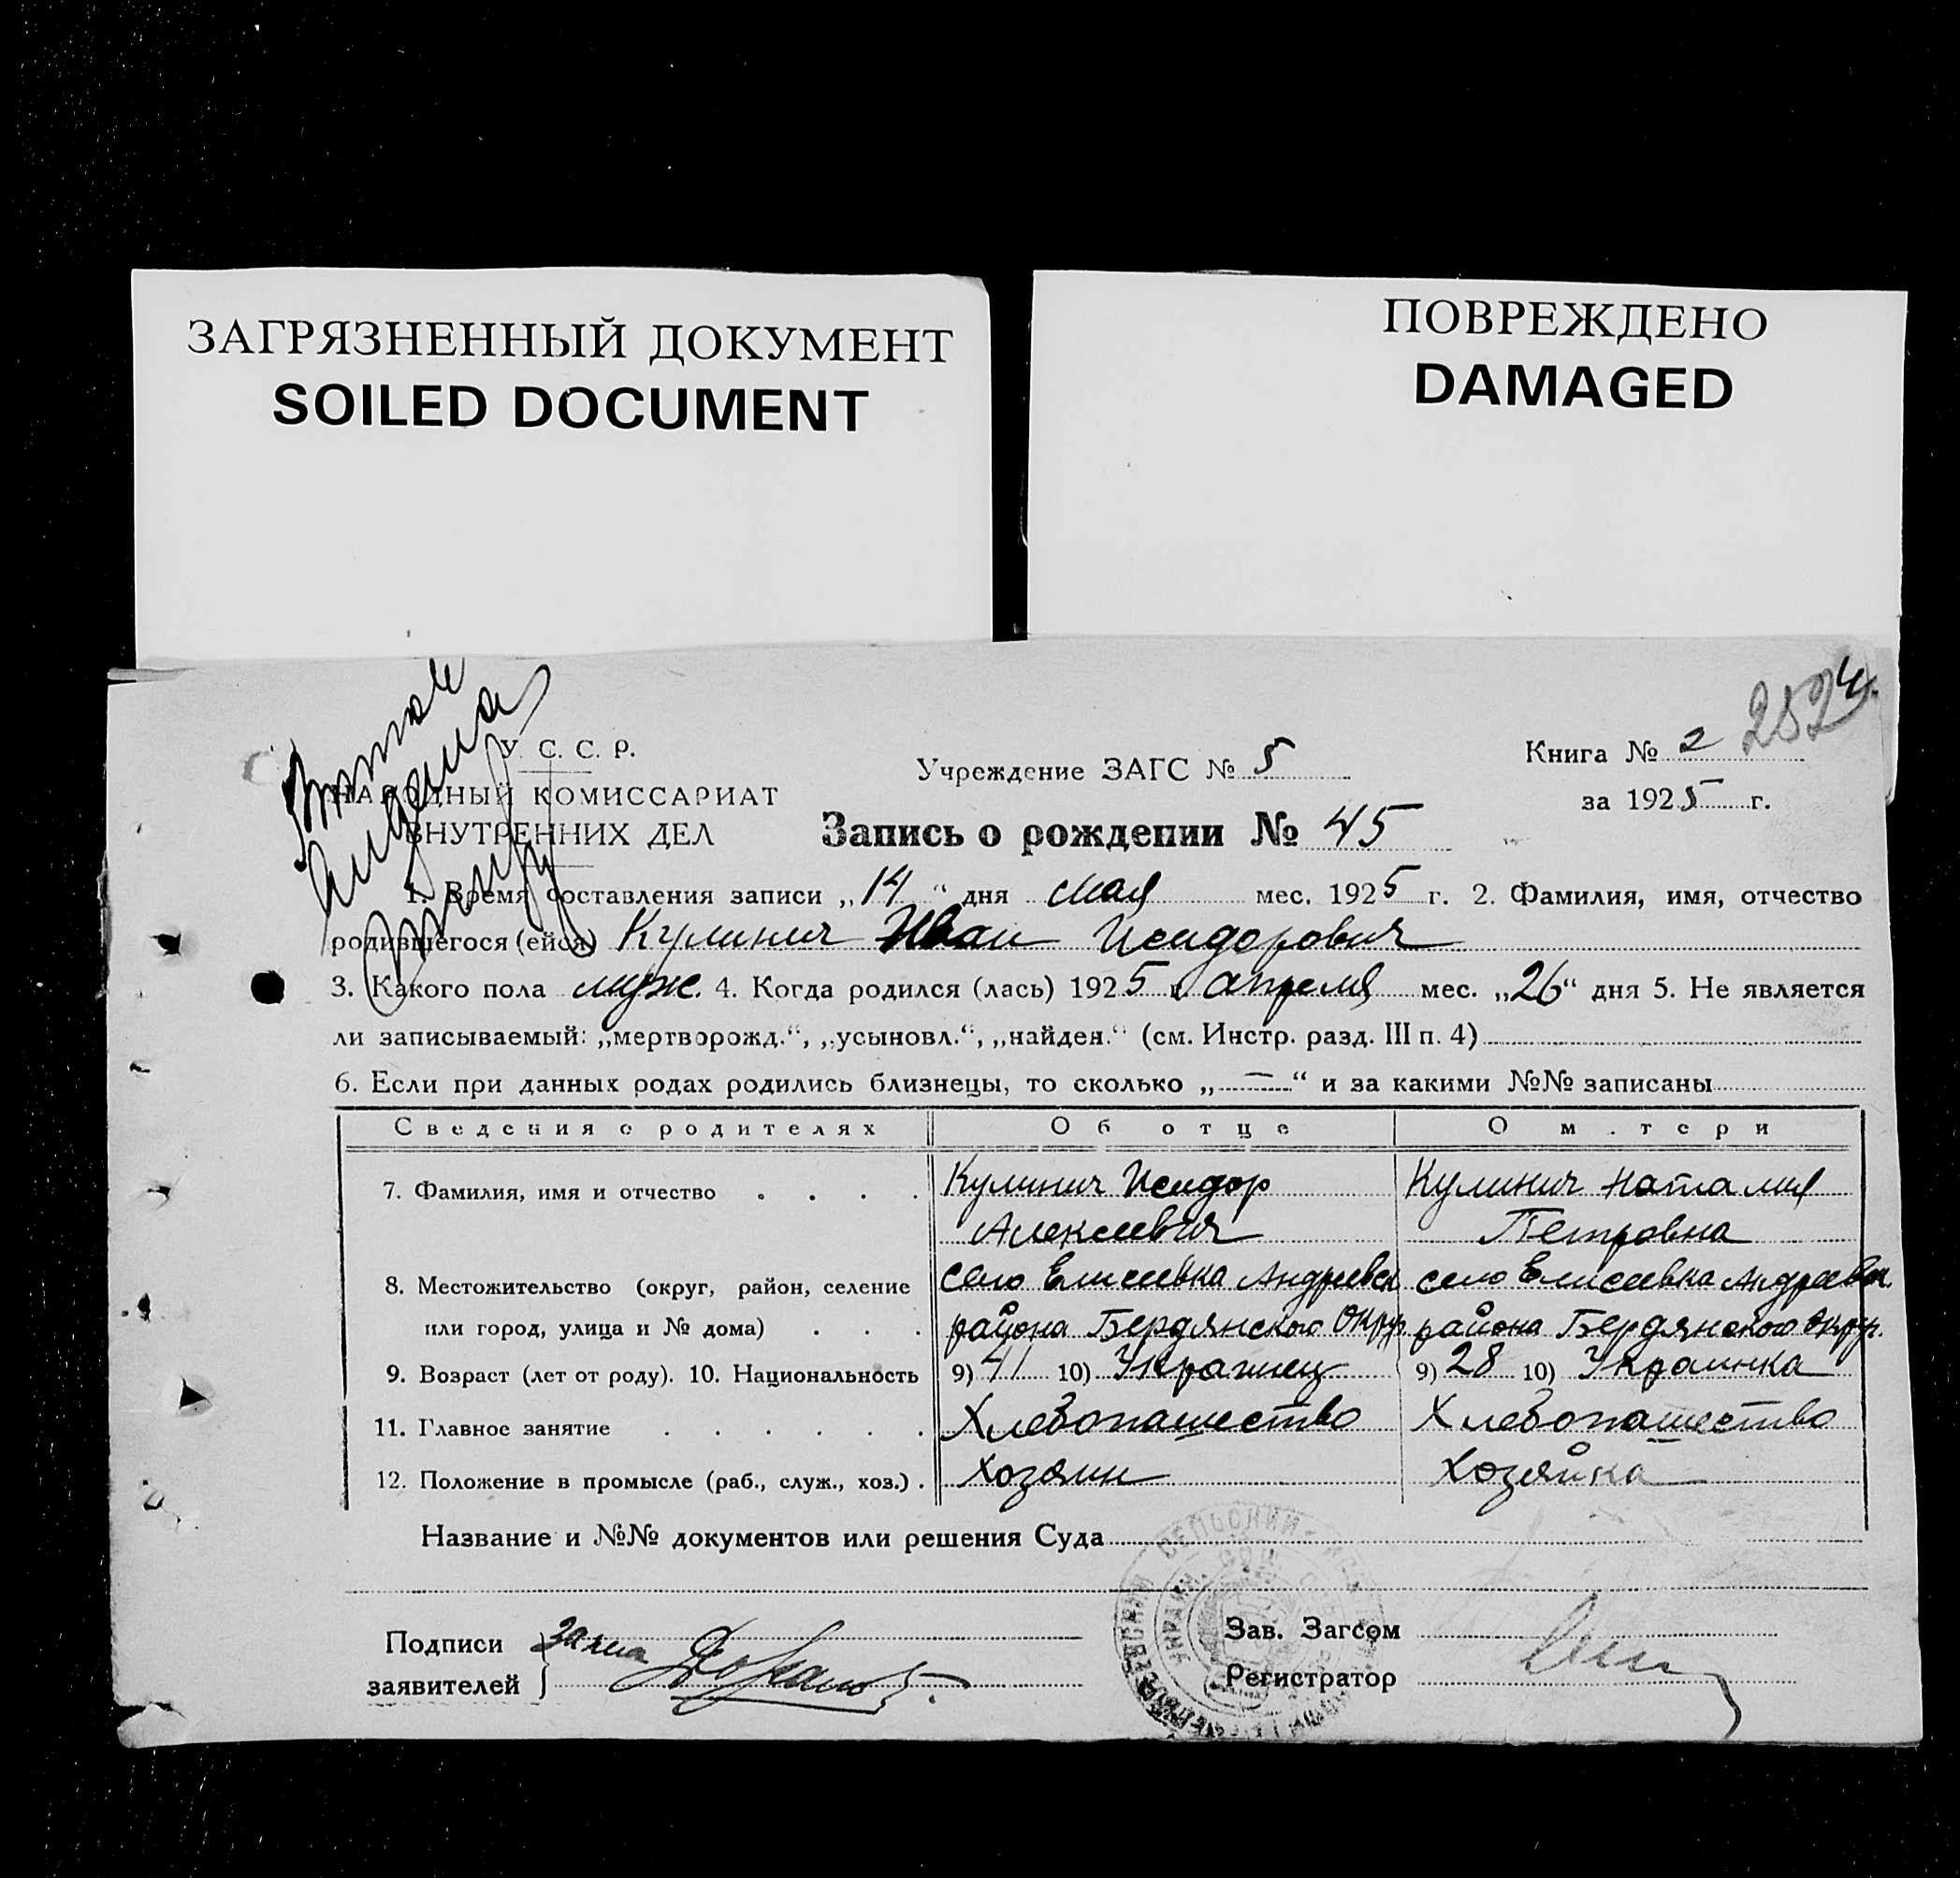 ЗАГРЯЗНЕННЫЙ ДОКУМЕНТ
SOILED DOCUMENT
ПОВРЕЖДЕНО
DAMAGED
У. С. С. Р.
НАРОДНЫЙ КОМИССАРИАТ
ВНУТРЕННИХ ДЕЛ
Учреждение ЗАГС № 5
Книга № 2
за 1925 г.
Запись о рождении № 45
1. Время составления записи „14“ дня мая мес. 1925 г. 2. Фамилия, имя, отчество
родившегося (ейся) Кулинич Иван Исидорович
3. Какого пола муж. 4. Когда родился (лась) 1925 г. апреля мес. „26“ дня 5. Не является
ли записываемый: „мертворожд.“, „усыновл.“, „найден.“ (см. Инстр. разд. III п. 4)
6. Если при данных родах родились близнецы, то сколько „—“ и за какими №№ записаны
Сведения о родителях Об отце О м.тери
7. Фамилия, имя и отчество . . . . Кулинич Исидор Кулинич Наталия
Алексеевич Петровна
8. Местожительство (округ, район, селение село Елисеевка Андреевск село Елисеевка Андреевск.
или город, улица и № дома) . . . района Бердянского Окр. района Бердянского Окр.
9. Возраст (лет от роду). 10. Национальность 9) 41 10) Украинец 9) 28 10) Украинка
11. Главное занятие . . . . . . Хлебопашество Хлебопашество
12. Положение в промысле (раб., служ., хоз.) . Хозяин Хозяйка
Название и №№ документов или решения Суда
Подписи
заявителей
Зав. Загсом
Регистратор